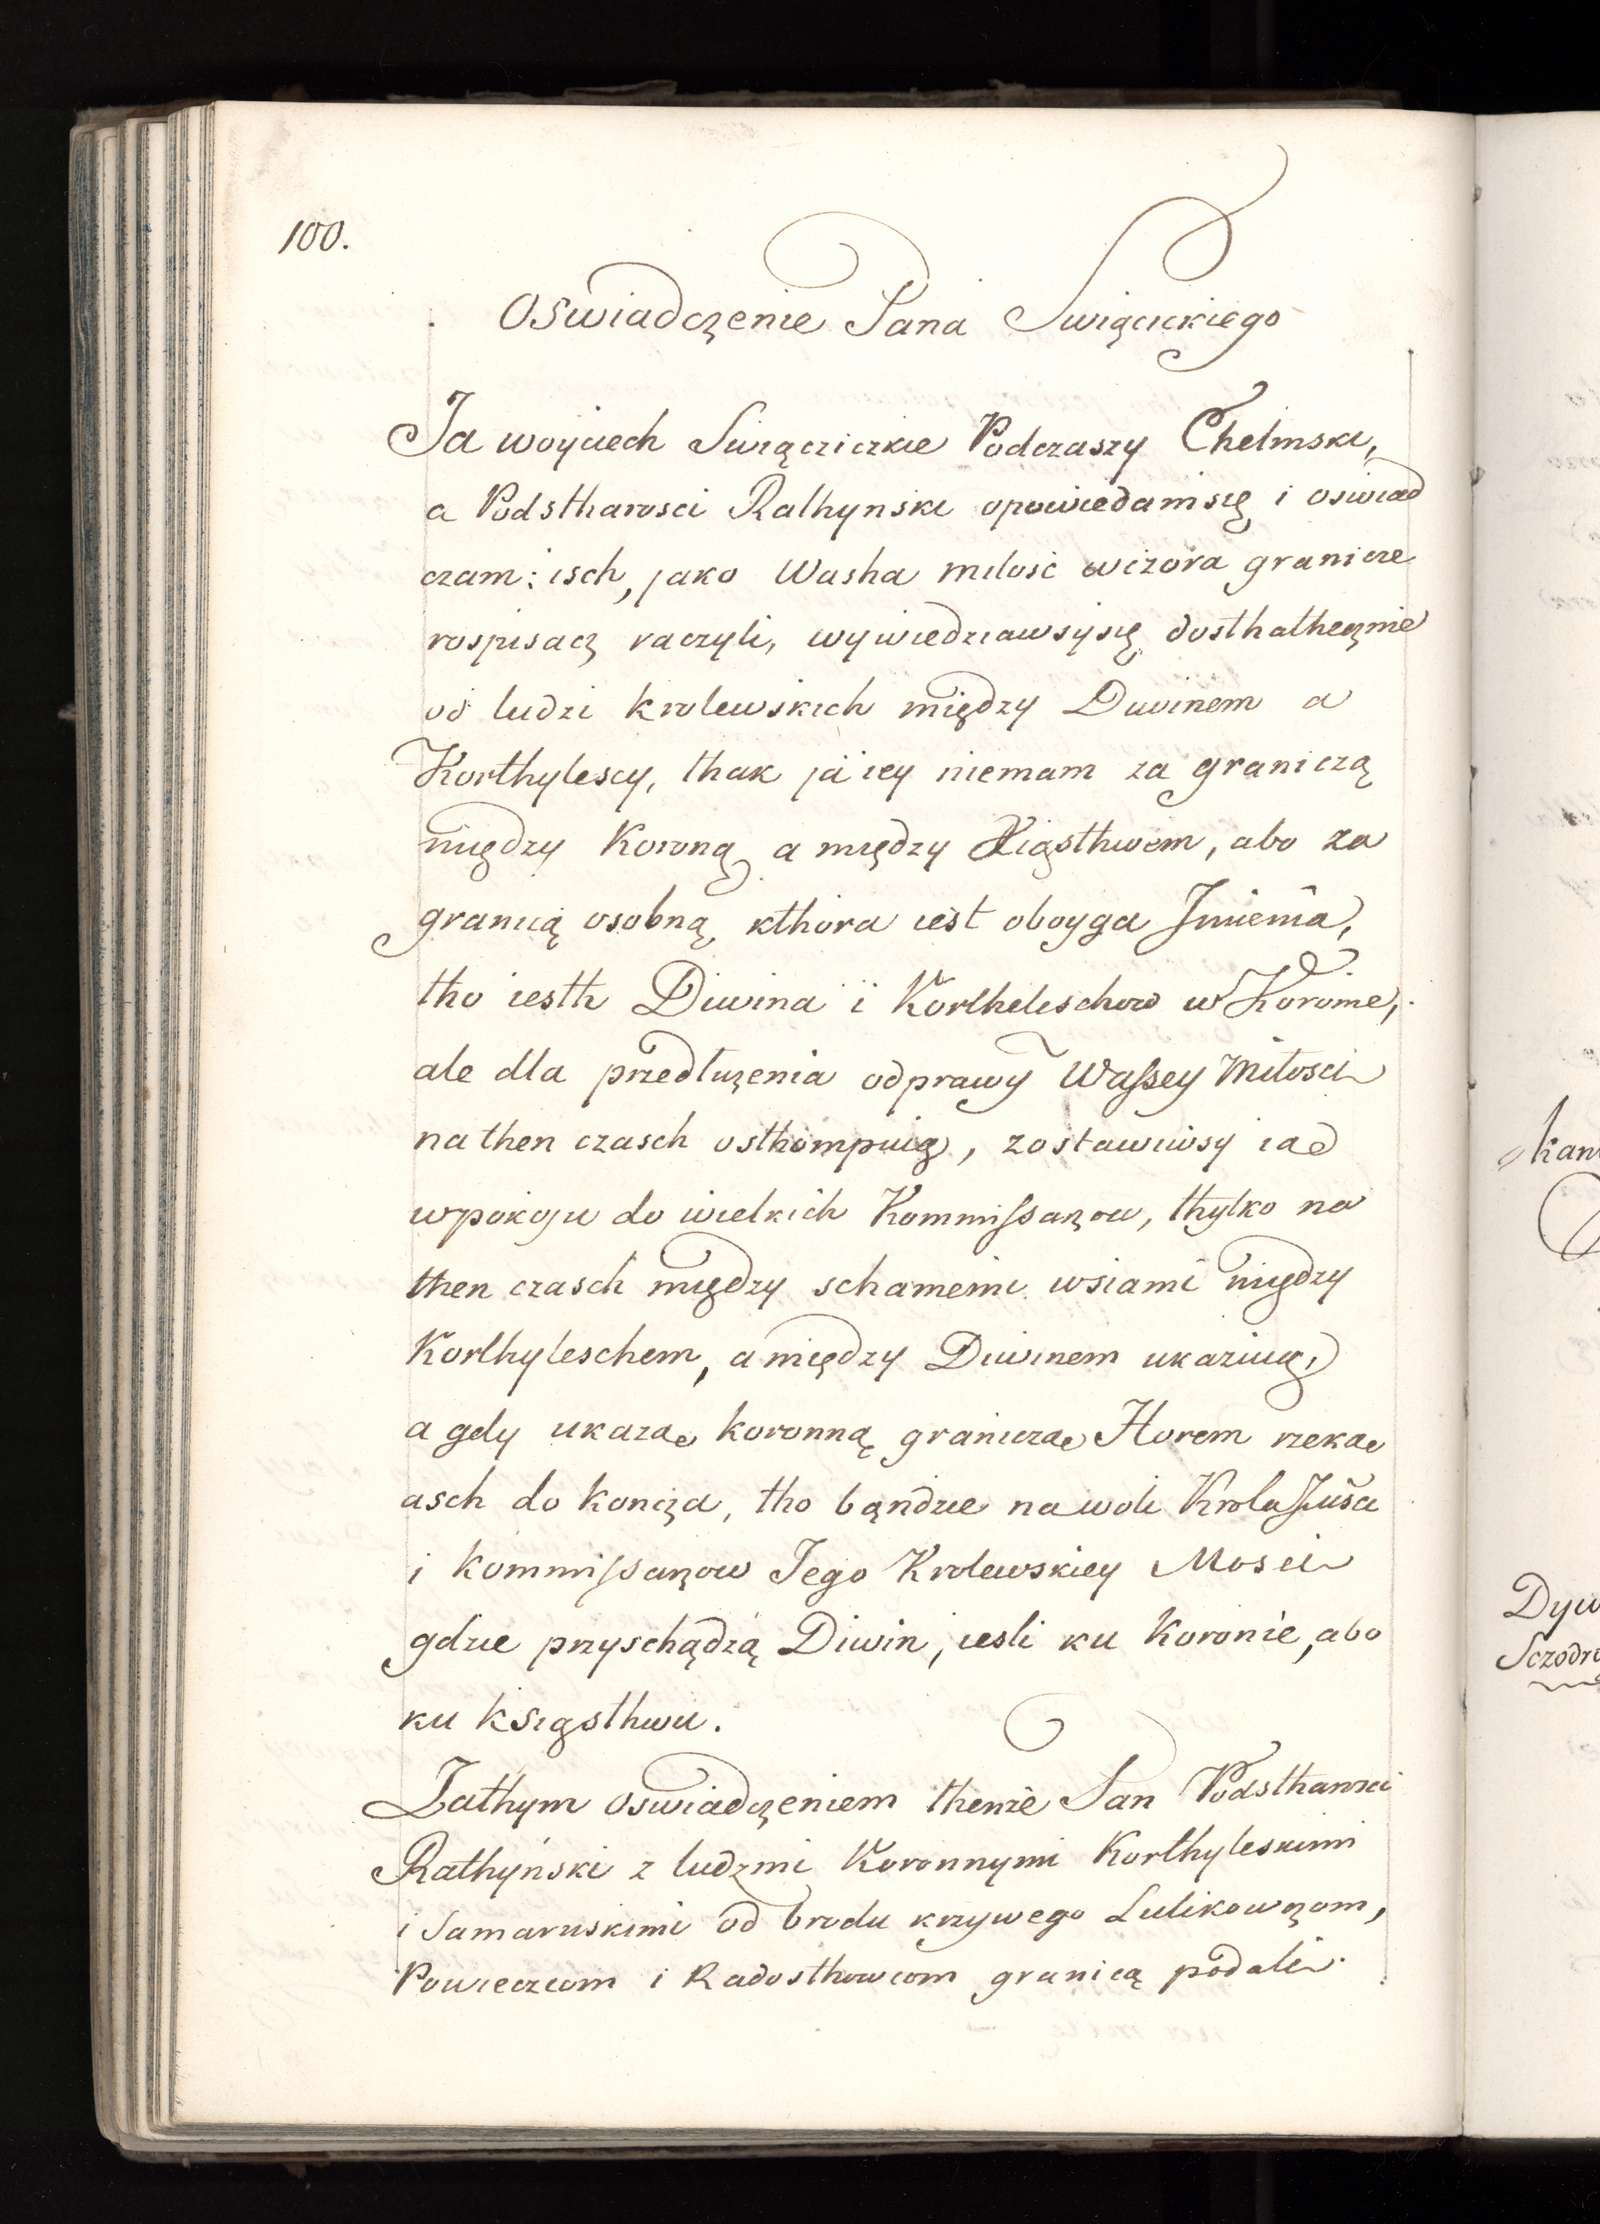 100.
Oswiadczenie Pana Swiącickiego
Ja woyciech Swiącziczkie Podczaszy Chelmski,
a Podstharosci Rathynski opowiedam się i oswiad
czam: isch, jako Washa miłosc wczora granicze
rospisacz raczyli, wywiedziawsysię dosthathecznie
od ludzi krolewskich między Diwinem a
Korthylescy, thak ja iey niemam za graniczą
między Koroną a między Xięsthwem, abo za
granicą osobną kthora iest oboyga Imienia,
tho iesth Diwina i Kortheleschow w Koronie,
ale dla przedłuzenia odprawy Wassey Miłosci
na then czasch osthompuię, zostawiwsy iae
wpokoju do wielkich Kommissarzow, thylko na
then czasch między schamemi wsiami między
Korthyleschem, a między Diwinem ukazuię,
a gdy ukazae koronną graniczae Horem rzekae
asch do koncza, tho bąndzie na woli Krola
i kommissarzow Jego Krolewskiey Mosci
gdzie przyschądzą Diwin, iesli ku Koronie, abo
ku księsthwu.
Zathym oswiadczeniem thenże Pan Podstharosci
Rathyński z ludzmi Koronnymi Korthyleskimi
i Samaruskimi od brodu krzywego Lulikowczom,
Powieczcom i Radosthowcom granicą podali.
kan
Dyw
Sczodr